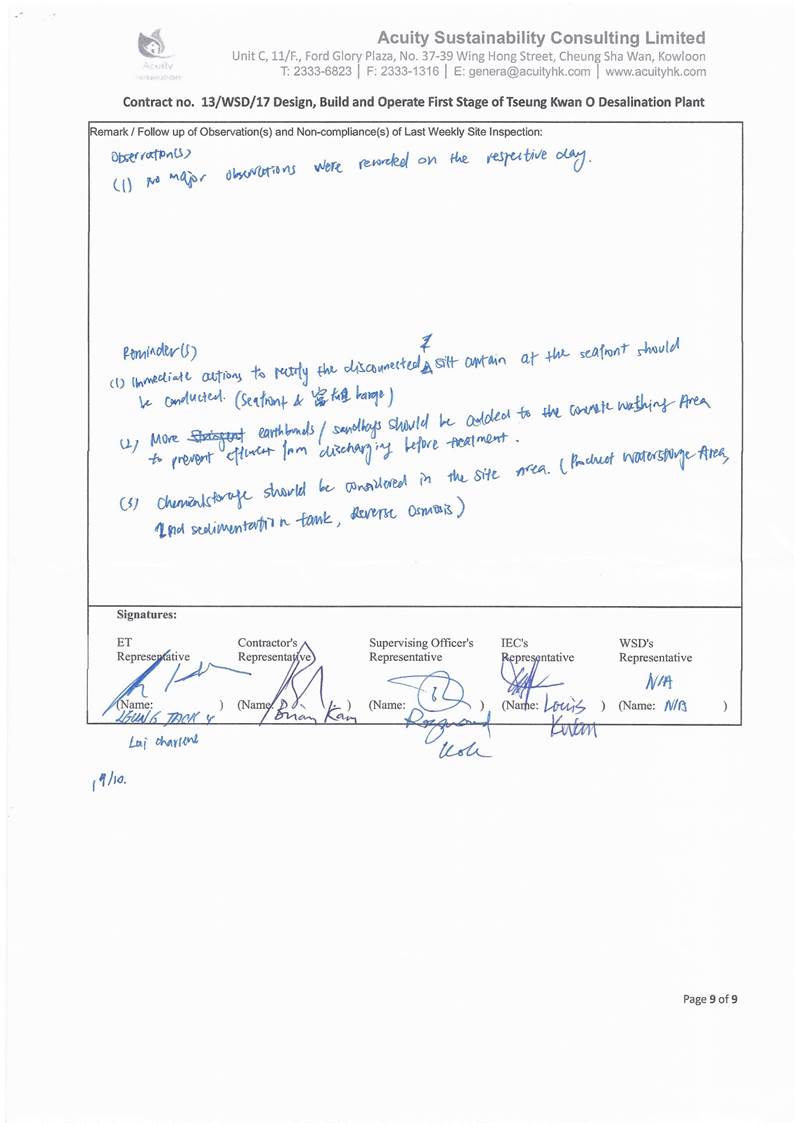 Acuity Sustainability Consulting Limited
Unit C, 11/F., Ford Glory Plaza, No. 37-39 Wing Hong Street, Cheung Sha Wan, Kowloon
T: 2333-6823 | F: 2333-1316 | E: genera@acuityhk.com | www.acuityhk.com
Acuity
Contract no. 13/WSD/17 Design, Build and Operate First Stage of Tseung Kwan O Desalination Plant
Remark / Follow up of Observation(s) and Non-compliance(s) of Last Weekly Site Inspection:
Observation(s)
(1) No major observations were recorded on the respective day.
Reminder(s)
(1) Immediate actions to rectify the disconnected silt curtain at the seafront should
be conducted. (Seafront & barge)
(2) More earthbunds / sandbags should be added to the concrete washing Area
to prevent effluent from discharging before treatment.
(3) Chemical storage should be considered in the site area. (Product Water storage Area,
2nd sedimentation tank, Reverse Osmosis)
Signatures:
ET Representative
Contractor's Representative
Supervising Officer's Representative
IEC's Representative
WSD's Representative
N/A
(Name: LEUNG JACK Y )
(Name: Brian Kam )
(Name: Raymond Koh )
(Name: Louis Kwan )
(Name: N/A )
Lai Charlene
19/10.
Page 9 of 9